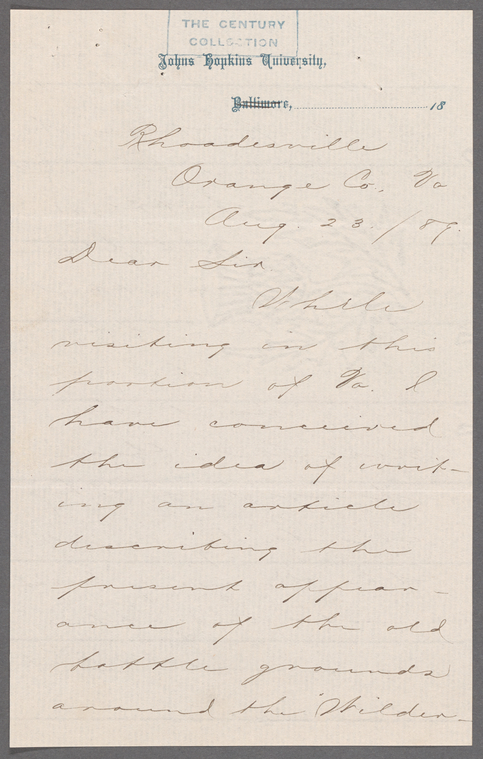 THE CENTURY
COLLECTION
Johns Hopkins University,
Baltimore, 18
Rhoadesville
Orange Co. Va
Aug. 23./89.
Dear Sir.
While
visiting in this
portion of Va. I
have conceived
the idea of writ-
ing an article
describing the
present appear-
ance of the old
battle grounds
around the "Wilder-